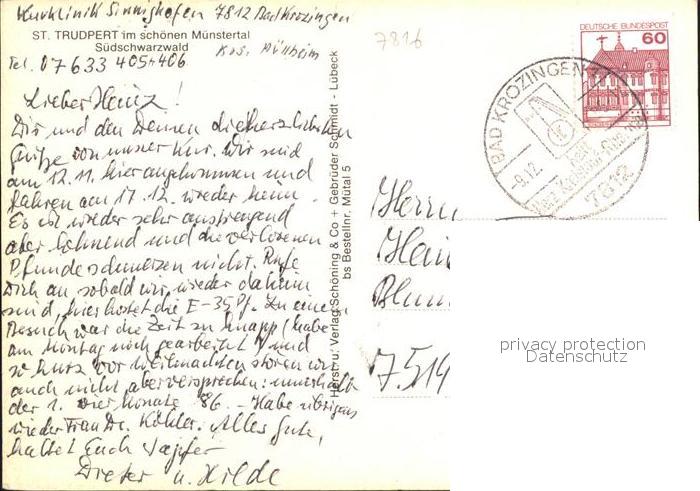 Kurklinik Sinnighofen 7812 Bad Krozingen
ST. TRUDPERT im schönen Münstertal
Südschwarzwald
Krs. Müllheim
Tel. 07633 405+406
7816
Lieber Heinz!
Dir und den Deinen die herzlichsten
Grüße von unser Kur. Wir sind
am 12.11. hier angekommen und
fahren am 17.12. wieder heim.
Es ist wieder sehr anstrengend
aber lohnend und die verlorenen
Pfunde schmerzen nicht. Rufe
Dich an sobald wir wieder daheim
sind, hier kostet die E- 35 Pf. Zu einem
Besuch war die Zeit zu knapp (habe
am Montag noch gearbeitet) und
so kurz vor Weihnachten stören wir
auch nicht, aber versprechen: innerhalb
der 1. vier Monate 86. - Habe übrigens
wieder Frau Dr. Köhler. Alles Gute,
haltet Euch tapfer
Dieter u. Hilde
Herst. u. Verlag Schöning & Co + Gebrüder Schmidt - Lübeck
bs Bestellnr. Mütal 5
DEUTSCHE BUNDESPOST
60
BAD KROZINGEN 1
-9.12.
7812
Herrn
Hein
Blum
7514
privacy protection
Datenschutz